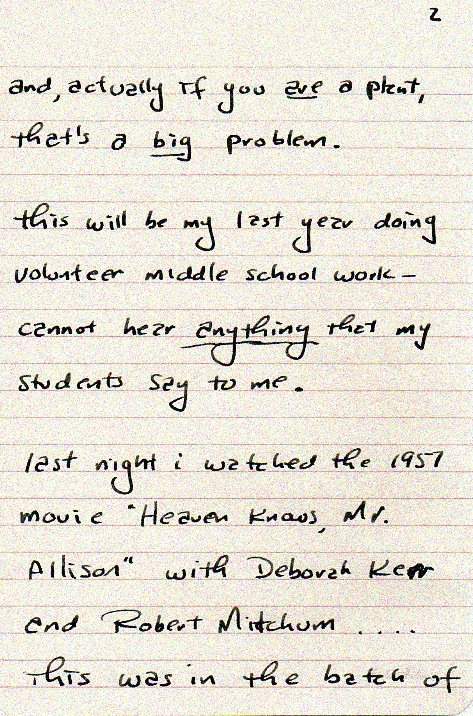 2
and, actually if you are a plant,
that's a big problem.
this will be my last year doing
volunteer middle school work –
cannot hear anything that my
students say to me.
last night i watched the 1957
movie "Heaven Knows, Mr.
Allison" with Deborah Kerr
and Robert Mitchum ....
This was in the batch of